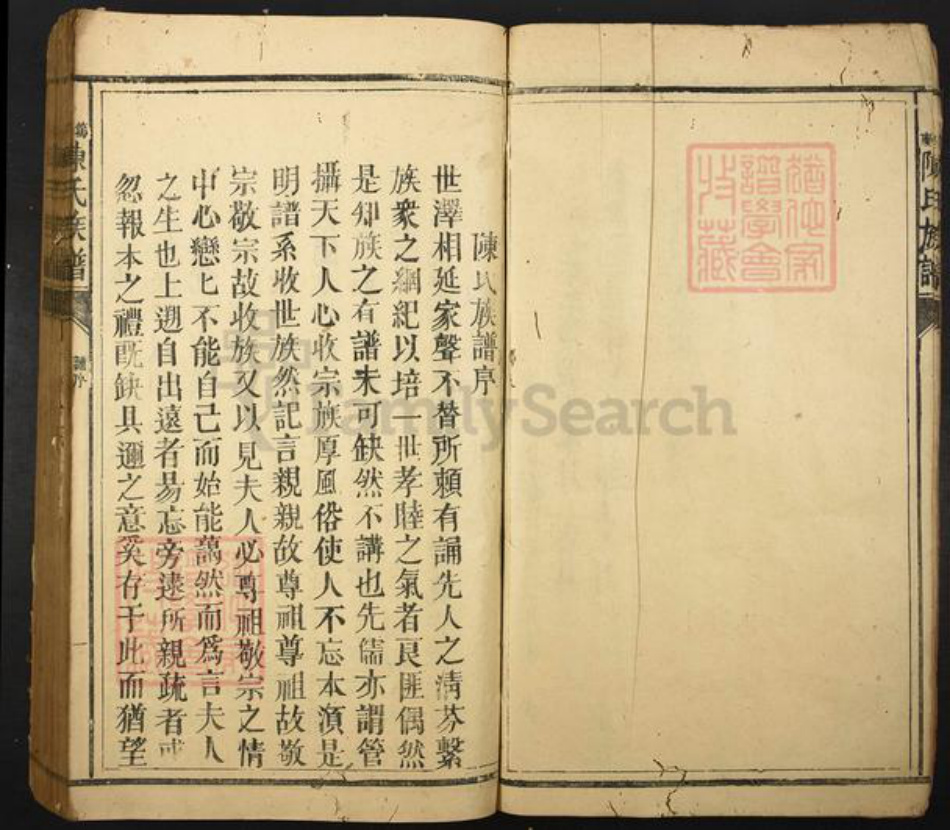 陳氏族譜
陳氏族譜序
世澤相延家聲不替所賴有誦先人之清芬繫
族衆之綱紀以培一世孝睦之氣者良匪偶然
是知族之有譜未可缺然不講也先儒亦謂管
攝天下人心收宗族厚風俗使人不忘本須是
明譜系收世族然記言親親故尊祖尊祖故敬
宗敬宗故收族又以見夫人必尊祖敬宗之情
中心戀匕不能自己而始能藹然而爲言夫人
之生也上遡自出遠者易忘旁逮所親疏者或
忽報本之禮既缺具邇之意奚存于此而猶望
陳氏族譜
譜序
FamilySearch